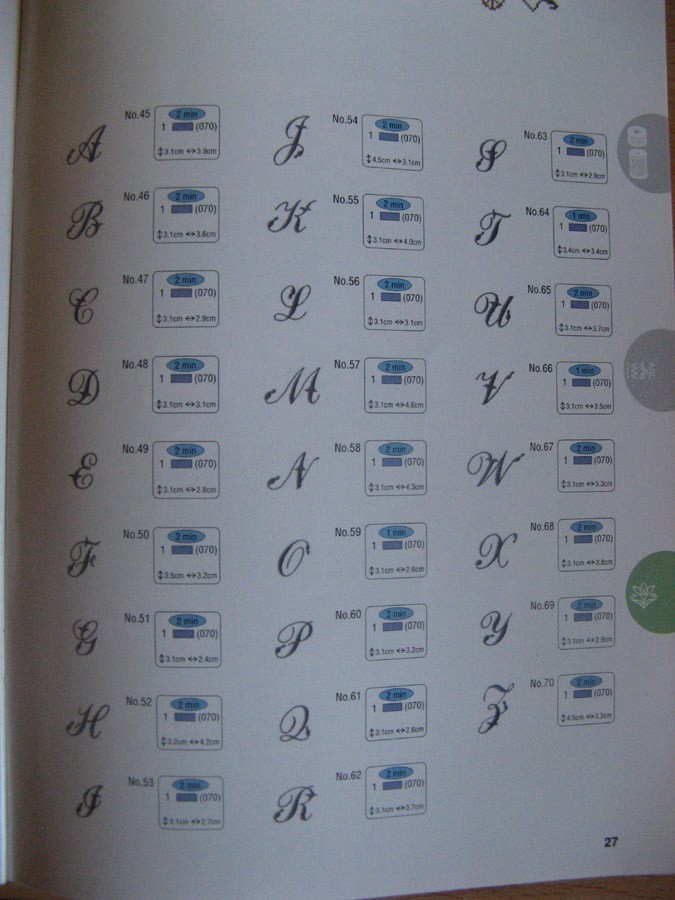 No.45
A
2 min
1 (070)
↕3.1cm ↔3.9cm
No.46
B
2 min
1 (070)
↕3.1cm ↔3.6cm
No.47
C
2 min
1 (070)
↕3.1cm ↔2.9cm
No.48
D
2 min
1 (070)
↕3.1cm ↔3.1cm
No.49
E
2 min
1 (070)
↕3.1cm ↔2.8cm
No.50
F
2 min
1 (070)
↕3.5cm ↔3.2cm
No.51
G
2 min
1 (070)
↕3.1cm ↔2.4cm
No.52
H
2 min
1 (070)
↕3.2cm ↔4.2cm
No.53
I
2 min
1 (070)
↕3.1cm ↔2.7cm
No.54
J
2 min
1 (070)
↕4.5cm ↔3.1cm
No.55
K
2 min
1 (070)
↕3.1cm ↔4.0cm
No.56
L
2 min
1 (070)
↕3.1cm ↔3.1cm
No.57
M
2 min
1 (070)
↕3.1cm ↔4.6cm
No.58
N
2 min
1 (070)
↕3.1cm ↔4.3cm
No.59
O
1 min
1 (070)
↕3.1cm ↔2.6cm
No.60
P
2 min
1 (070)
↕3.1cm ↔3.2cm
No.61
Q
2 min
1 (070)
↕3.1cm ↔2.6cm
No.62
R
2 min
1 (070)
↕3.1cm ↔3.7cm
No.63
S
2 min
1 (070)
↕3.1cm ↔2.9cm
No.64
T
1 min
1 (070)
↕3.4cm ↔3.4cm
No.65
U
2 min
1 (070)
↕3.1cm ↔3.7cm
No.66
V
1 min
1 (070)
↕3.1cm ↔3.5cm
No.67
W
2 min
1 (070)
↕3.1cm ↔5.3cm
No.68
X
2 min
1 (070)
↕3.1cm ↔3.8cm
No.69
Y
2 min
1 (070)
↕3.1cm ↔2.9cm
No.70
Z
2 min
1 (070)
↕4.5cm ↔3.3cm
27